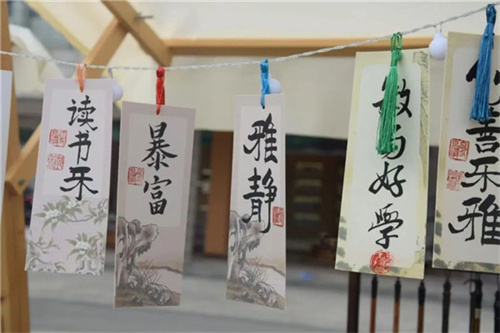 读书乐
暴富
雅静
敏而好学
善乐雅